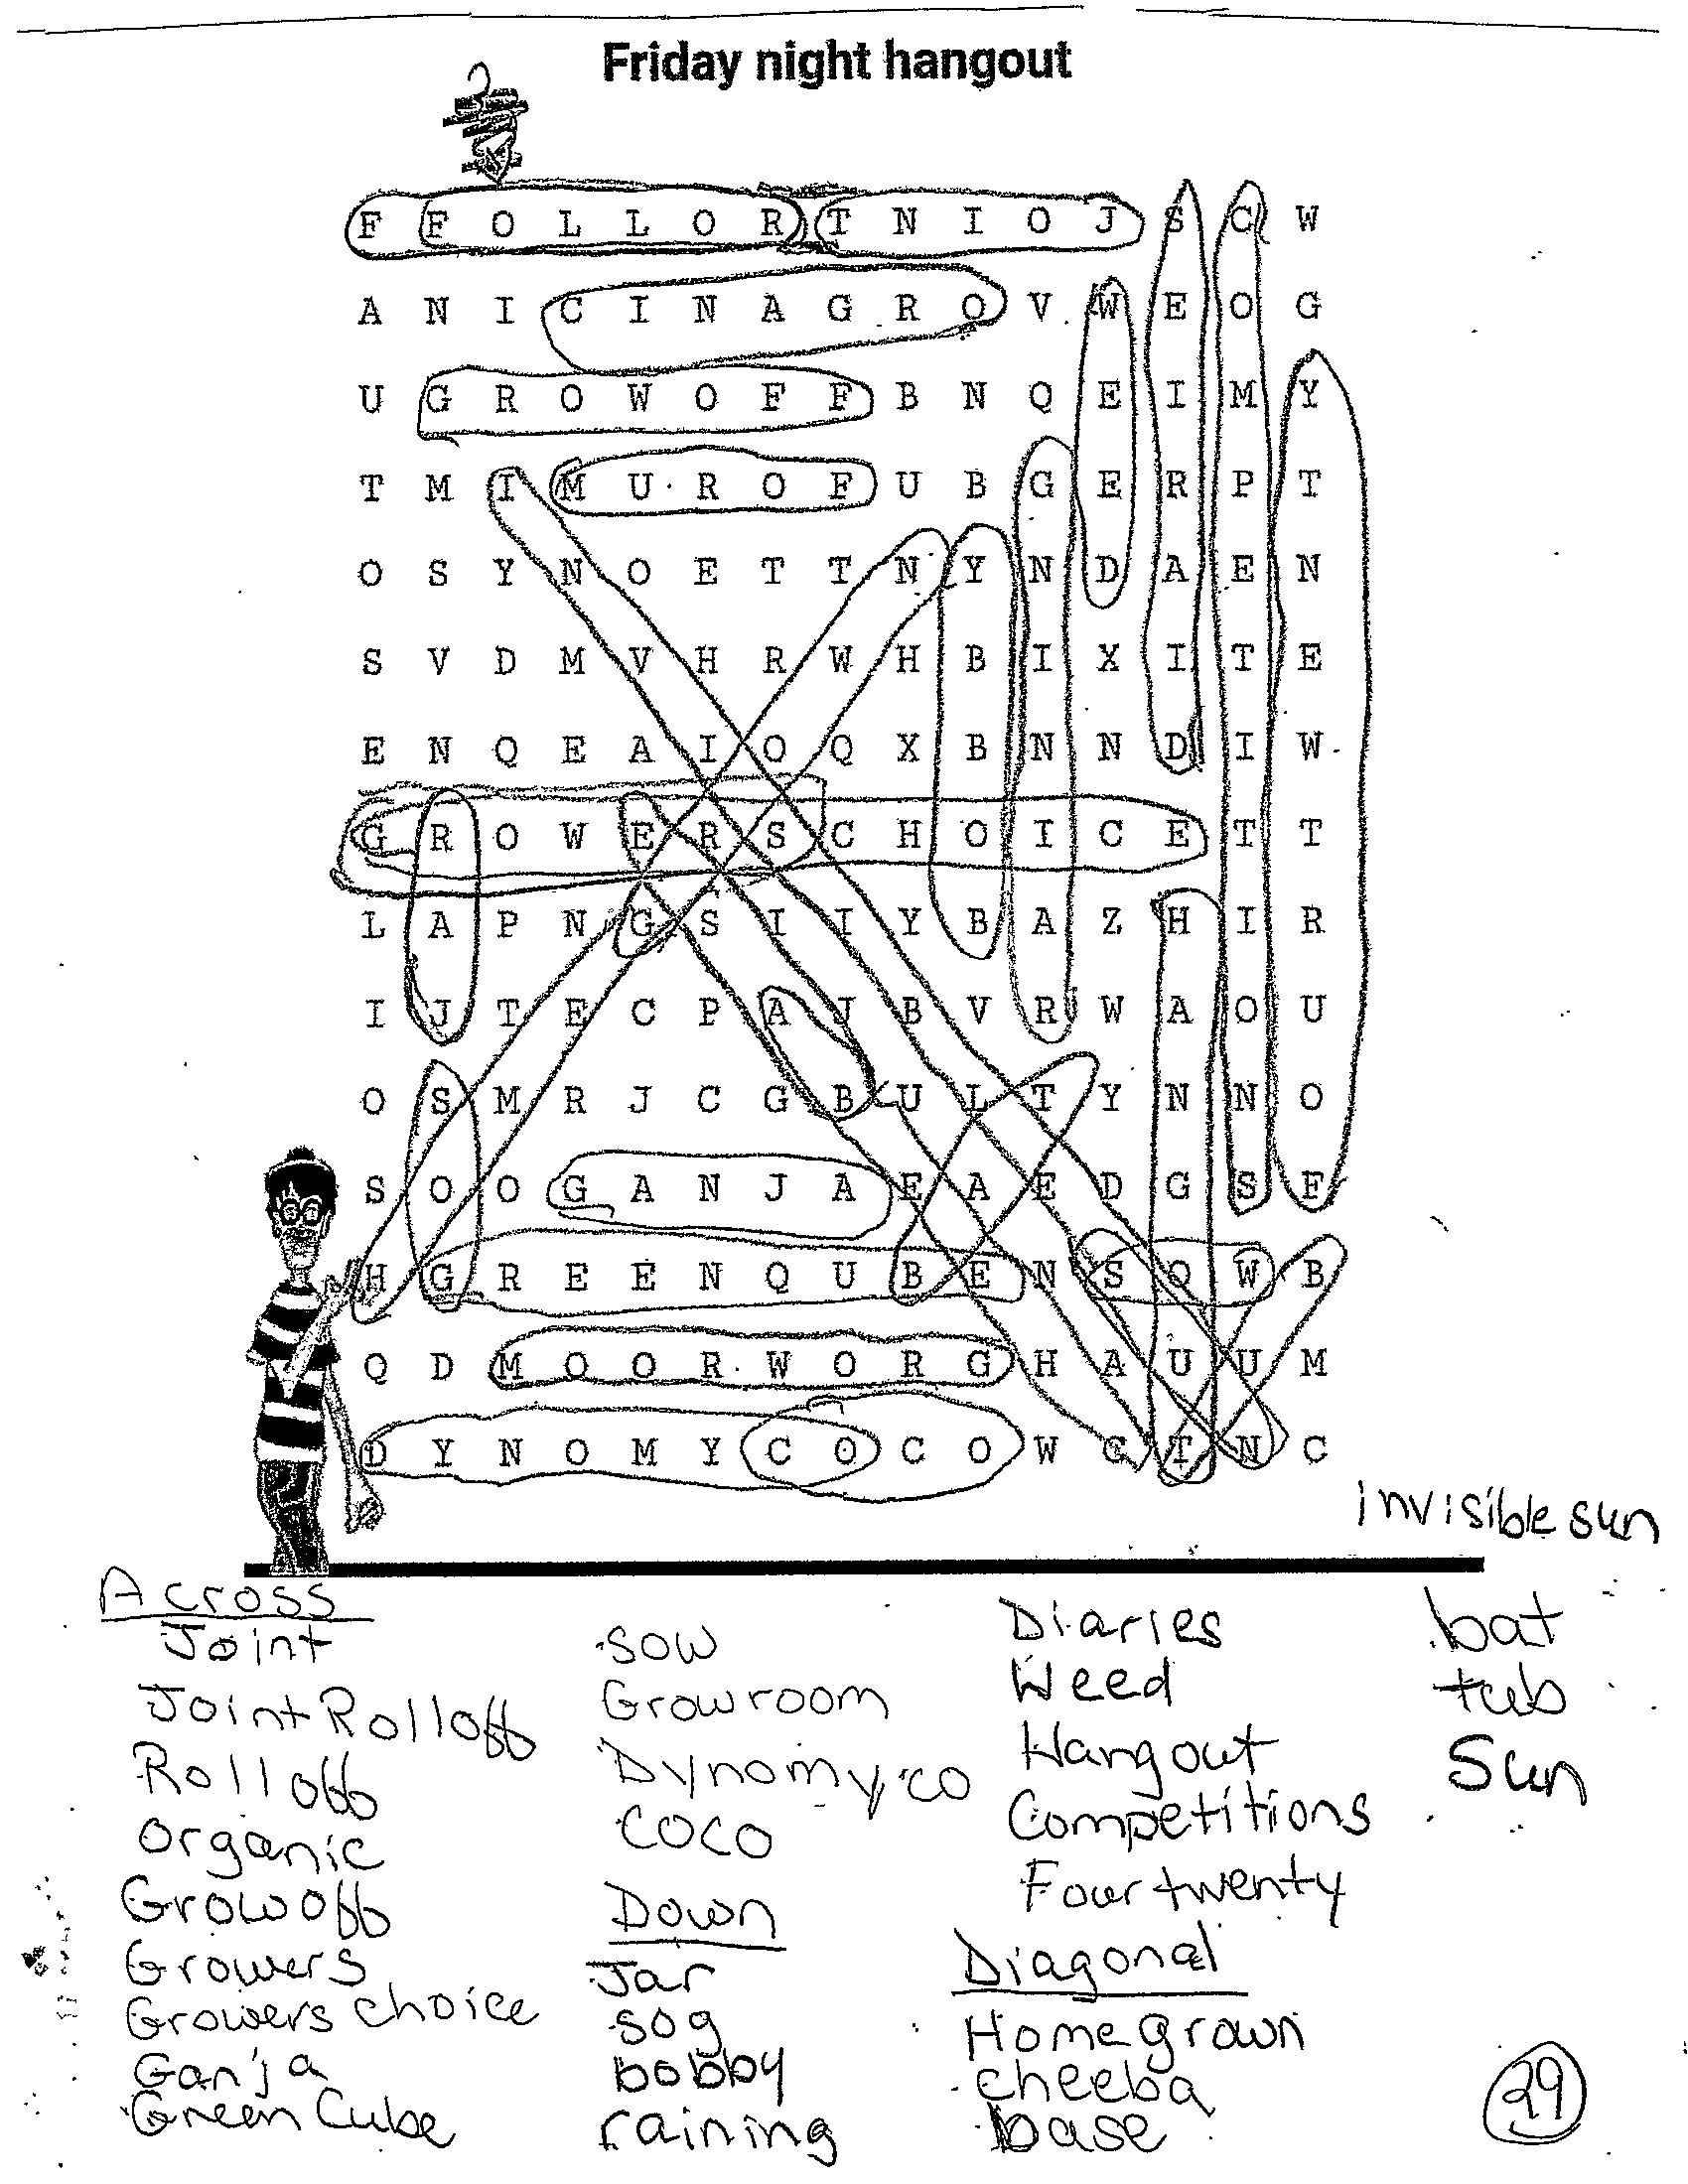 Friday night hangout
F F O L L O R T N I O J S C W
A N I C I N A G R O V W E O G
U G R O W O F F B N Q E I M Y
T M I M U R O F U B G E R P T
O S Y N O E T T N Y N D A E N
S V D M V H R W H B I X I T E
E N Q E A I O Q X B N N D I W
G R O W E R S C H O I C E T T
L A P N G S I I Y B A Z H I R
I J T E C P A J B V R W A O U
O S M R J C G B U L T Y N N O
S O O G A N J A E A E D G S F
H G R E E N Q U B E N S O W B
Q D M O O R W O R G H A U U M
D Y N O M Y C O C O W C T N C
Invisible sun
Across
Joint
Joint Rolloff
Roll off
Organic
Grow off
Growers
Growers choice
Ganja
Green Cube
Sow
Growroom
Dynomyco
COCO
Down
Jar
Sog
bobby
raining
Diaries
Weed
Hangout
Competitions
Four twenty
Diagonal
Homegrown
cheeba
base
bat
tub
Sun
29